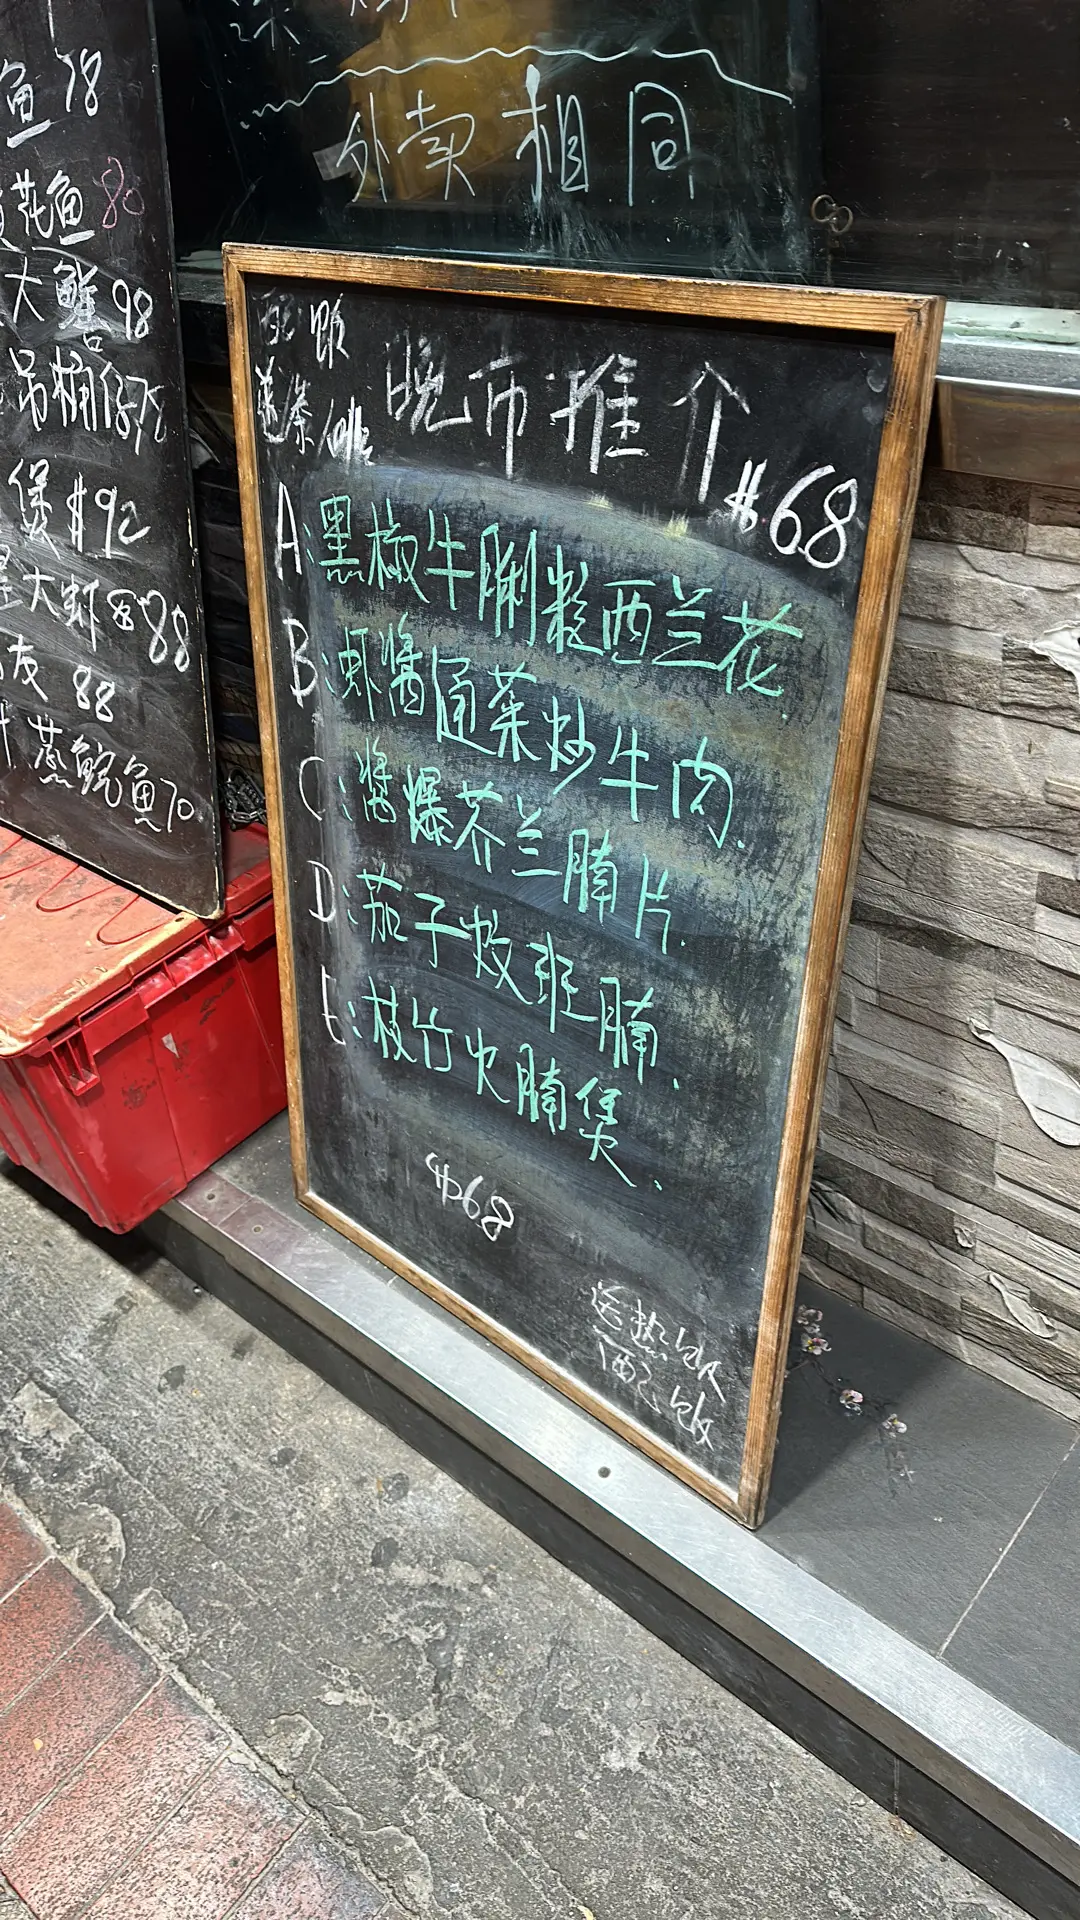 外卖相同
鱼 78
花鱼 80
大鳝 98
吊桶仔 78
煲 $92
大虾 $88
88
蒸鲩鱼 70
晚市推介
$68
A：黑椒牛脷粒西兰花
B：虾酱通菜炒牛肉.
C：酱爆芥兰腩片.
D：茄子炆班腩.
E：枝竹火腩煲.
$68